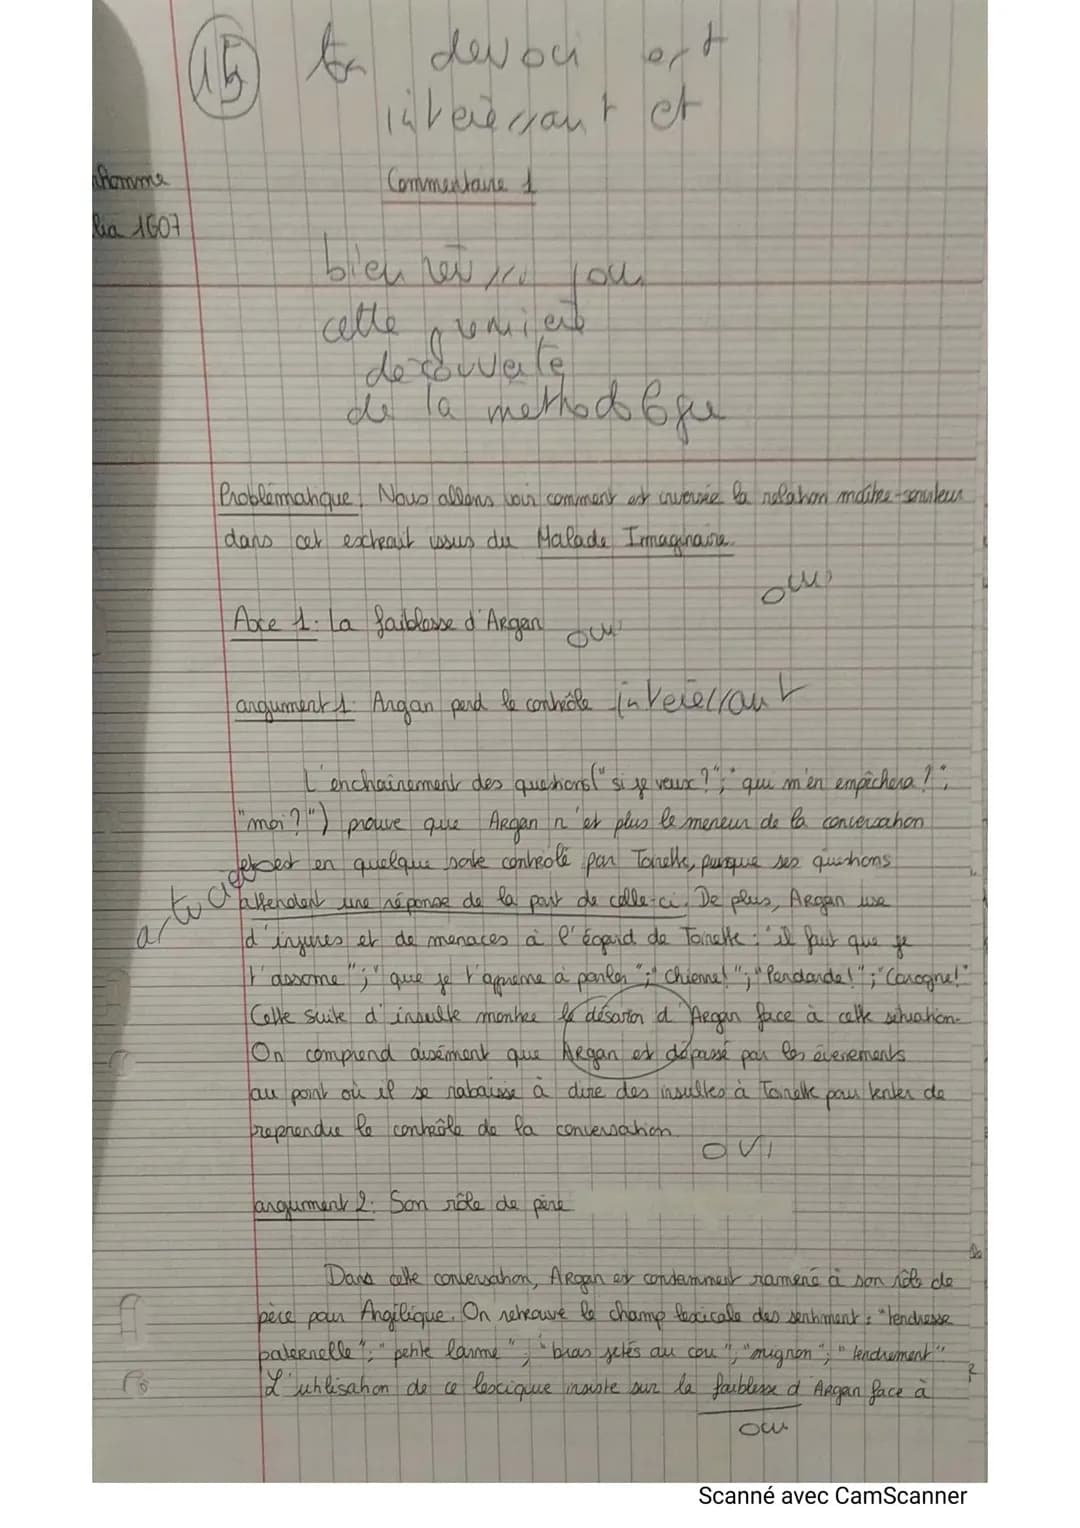 15 Ton devoir est
intéressant et
homme
lia 1G07
Commentaire 1
bien réussi pour
cette première
découverte
de la méthodologie
Problématique: Nous allons voir comment est inversée la relation maître-serviteur
dans cet extrait issus du Malade Imaginaire.
oui
Axe 1: La faiblesse d'Argan oui
argument 1: Argan perd le contrôle intéressant
L'enchainement des questions("si je veux?"; "qui m'en empêchera?";
"moi?") prouve que Argan n'est plus le meneur de la conversation
et est en quelque sorte contrôlé par Toinette, puisque ses questions
attendent une réponse de la part de celle-ci. De plus, Argan use
d'injures et de menaces à l'égard de Toinette: "il faut que je
l'assome"; "que je t'apprenne à parler"; "Chienne!"; "Pendarde!"; "Carogne!"
Cette suite d'insulte montre le désaroi d'Argan face à cette situation.
On comprend aisément que Argan est dépassé par les évenements
au point où il se rabaisse à dire des insultes à Toinette pour tenter de
reprendre le contrôle de la conversation.
OUI
argument 2: Son rôle de père
Dans cette conversation, Argan est constamment ramené à son rôle de
père pour Angélique. On retrouve le champ lexicale des sentiment: "tendresse
paternelle"; "petite larme"; "bras jetés au cou"; "mignon"; "tendrement"
L'utilisation de ce lexcique insiste sur la faiblesse d'Argan face à
oui
Scanné avec CamScanner